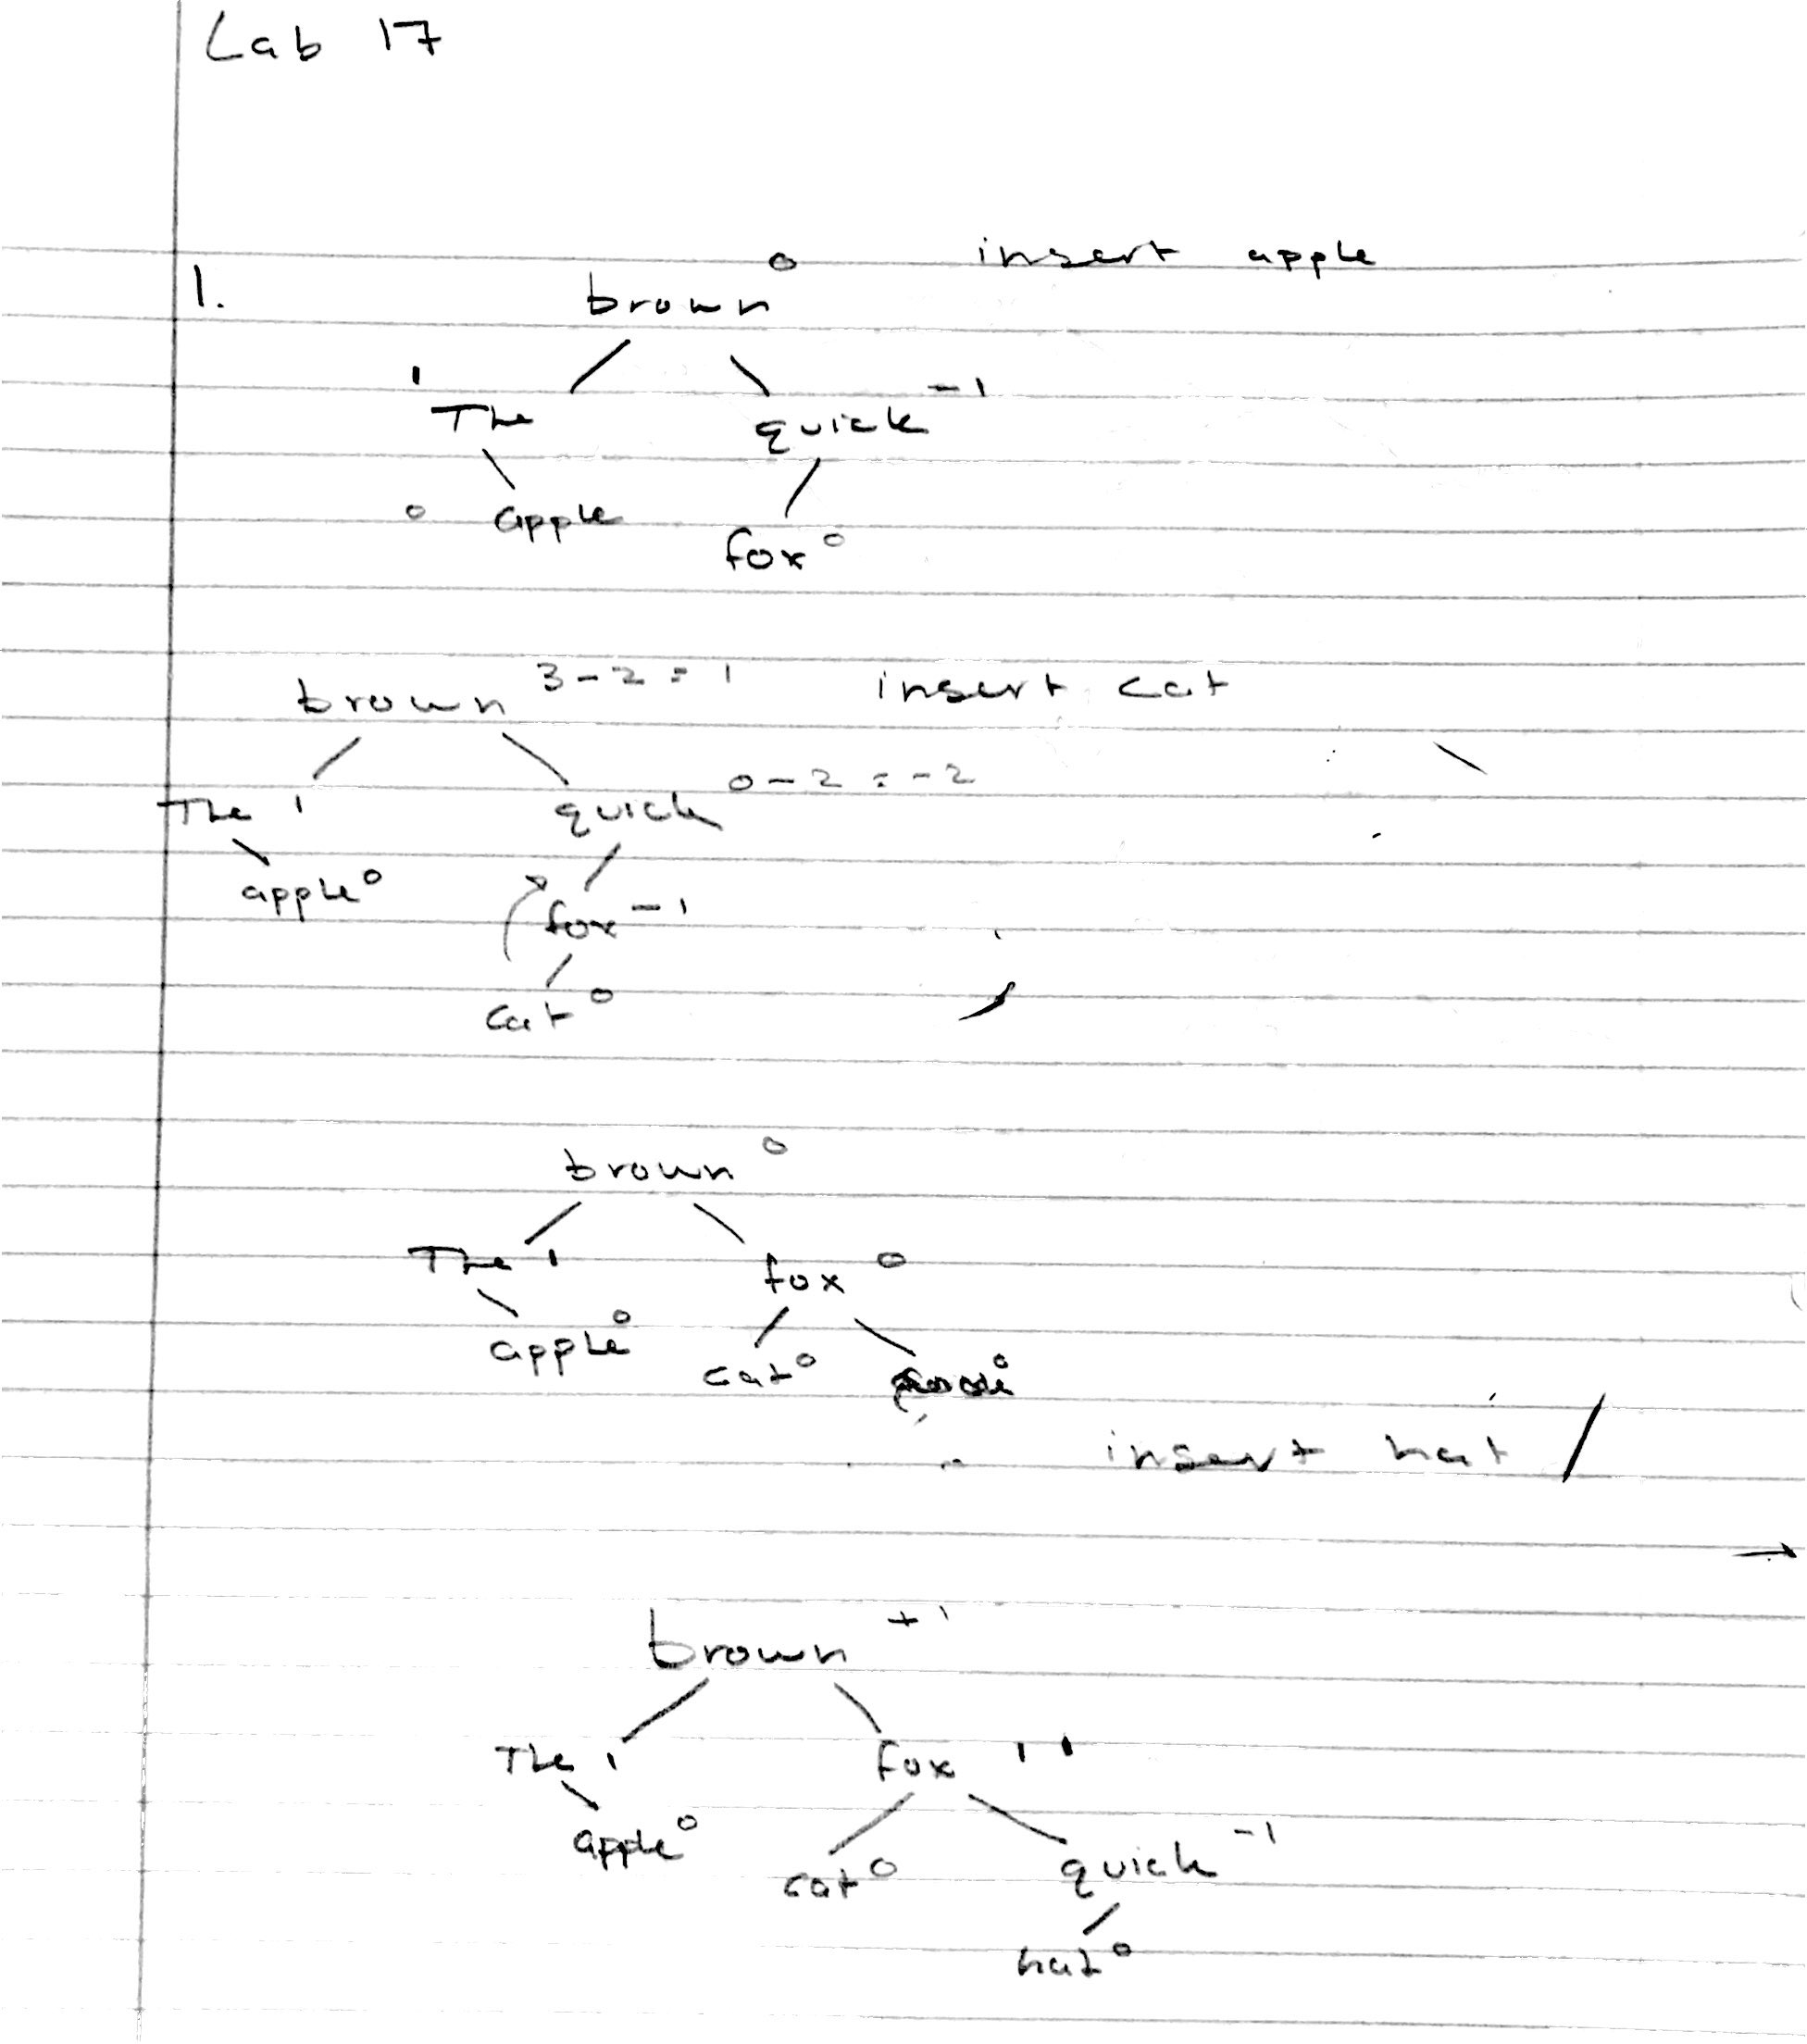 Lab 17
1.
brown 0 insert apple
1 The quick -1
0 apple fox 0
brown 3-2=1 insert cat
The 1 quick 0-2=-2
apple 0 fox -1
cat 0
brown 0
The 1 fox 0
apple 0 cat 0 0
insert hat
brown +1
The 1 fox 1
apple 0 cat 0 quick -1
hat 0